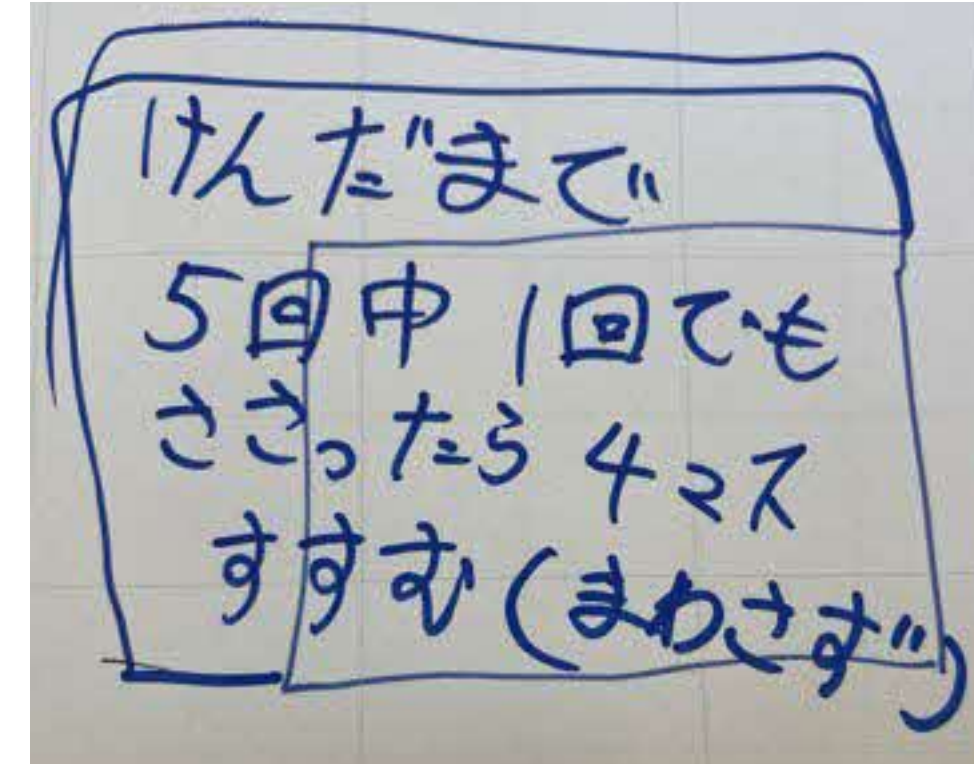 けんだまで
5回中1回でも
ささったら4マス
すすむ(まわさず)